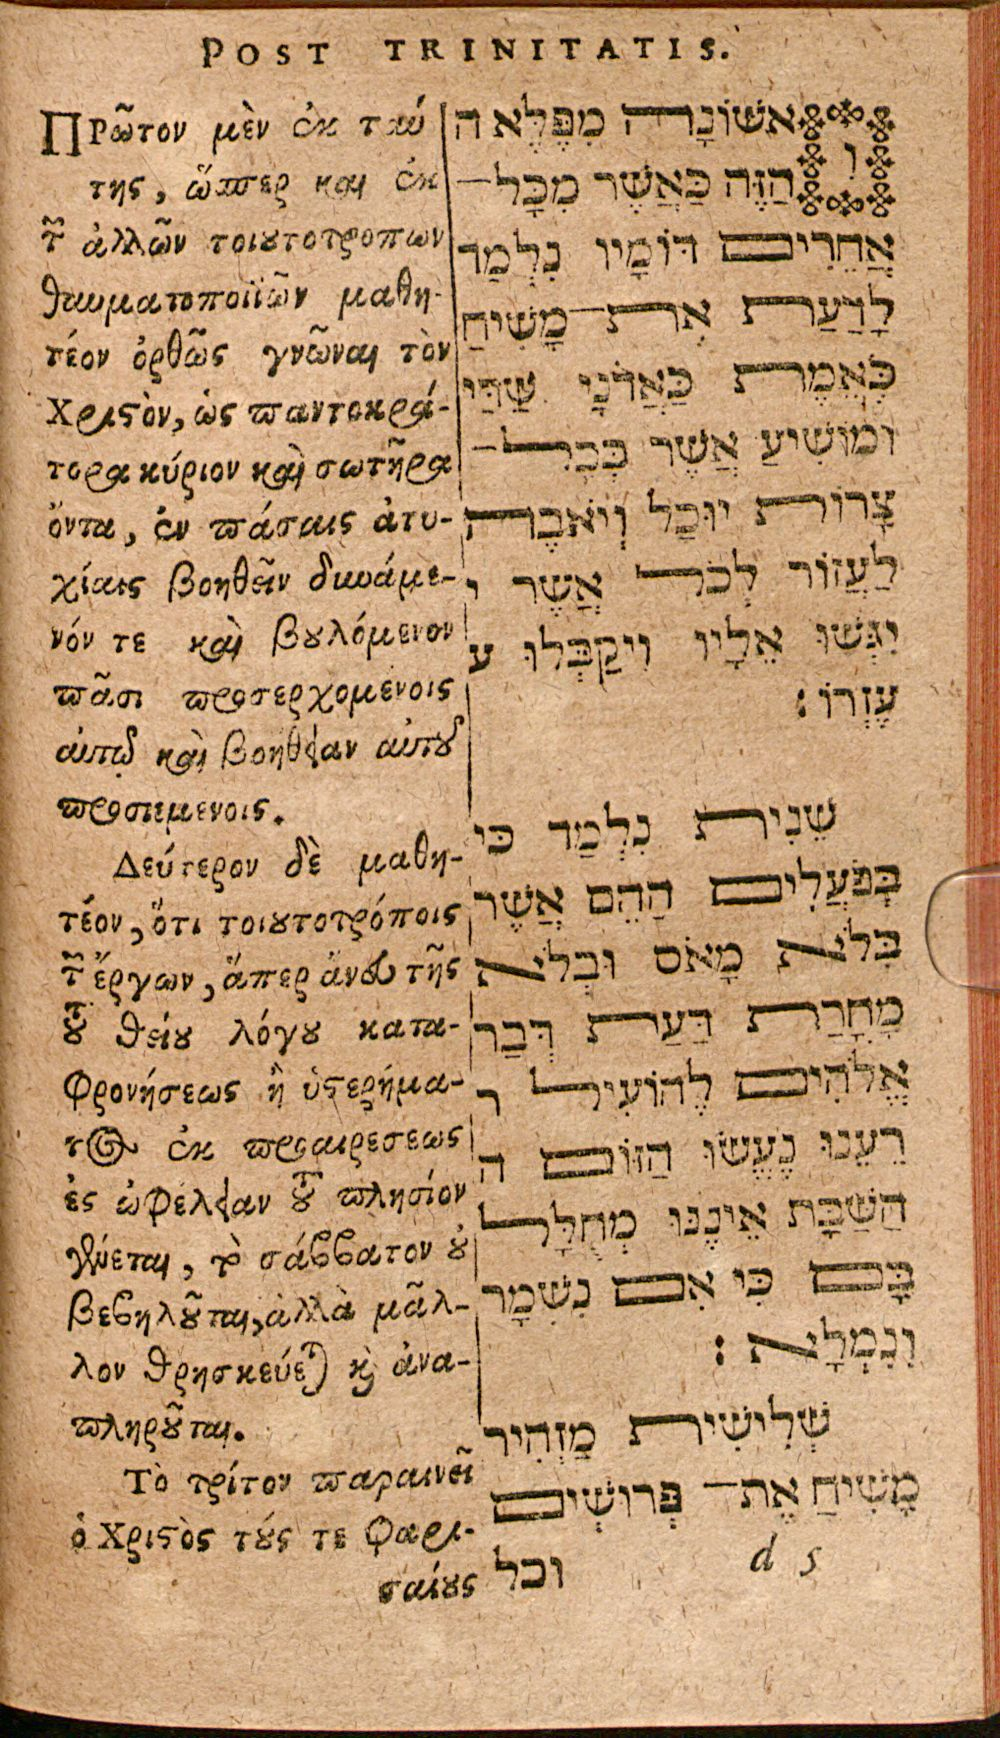 POST TRINITATIS.
Πρῶτον μὲν ἐκ ταύ
της, ὥσπερ καὶ ἐκ
τῶν ἀλλῶν τοιουτοτροπων
θαυματοποιϊῶν μαθη-
τέον ὀρθῶς γνῶναι τὸν
Χριστὸν, ὡς παντοκρά-
τορα κύριον καὶ σωτῆρα
ὄντα, ἐν πάσαις ἀτυ-
χίαις βοηθεῖν δυνάμε-
νόν τε καὶ βουλόμενον
πᾶσι προσερχομένοις
αὐτῷ καὶ βοήθειαν αὐτοῦ
προσιεμενοις.
Δεύτερον δὲ μαθη-
τέον, ὅτι τοιουτοτρόποις
τῶν ἔργων, ἅπερ ἄνευ τῆς
τοῦ θείου λόγου κατα-
φρονήσεως ἢ ὑστερήμα-
τος ἐκ προαιρεσεως
ἐς ὠφέλειαν τοῦ πλησίον
γίνεται, τὸ σάββατον οὐ
βεβηλοῦται, ἀλλὰ μᾶλ-
λον θρησκεύεται καὶ ἀνα-
πληροῦται.
Τὸ τρίτον παραινεῖ
ὁ Χριστὸς τούς τε Φαρι-
σαίους
אשׁוֹנָה מִפֶּלֶא ה
הַזֶּה כַּאֲשֶׁר מִכָּל־
אֲחֵרִים דּוֹמָיו נִלְמַד
לָדַעַת אֶת־ מָשִׁיחַ
כֶּאֱמֶת כַּאֲדֹנָי שַׁדַּי
וּמוֹשִׁיעַ אֲשֶׁר בְּכָל־
צָרוֹת יוּכַל וְיֹאבֶה
לַעֲזוֹר לְכֹל אֲשֶׁר י
יִגְּשׁוּ אֵלָיו וִיקַבְּלוּ ע
עֶזְרוֹ׃
שֵׁנִית נִלְמַד כִּי
בְּפֹעֲלִים הַהֵם אֲשֶׁר
בְּלֹא מָאֹס וּבְלֹא
דַּעַת דְּבַר
אֱלֹהִים לְהוֹעִיל ר
רֵעֵנוּ נֶעֱשׂוּ הַיּוֹם ה
הַשַּׁבָּת אֵינֶנּוּ מְחֻלָּל
בָּם כִּי אִם נִשְׁמָר
וְנִמְלָא׃
שְׁלִישִׁית מַזְהִיר
מָשִׁיחַ אֶת־ פְּרוּשִׁים
וכל
d 5